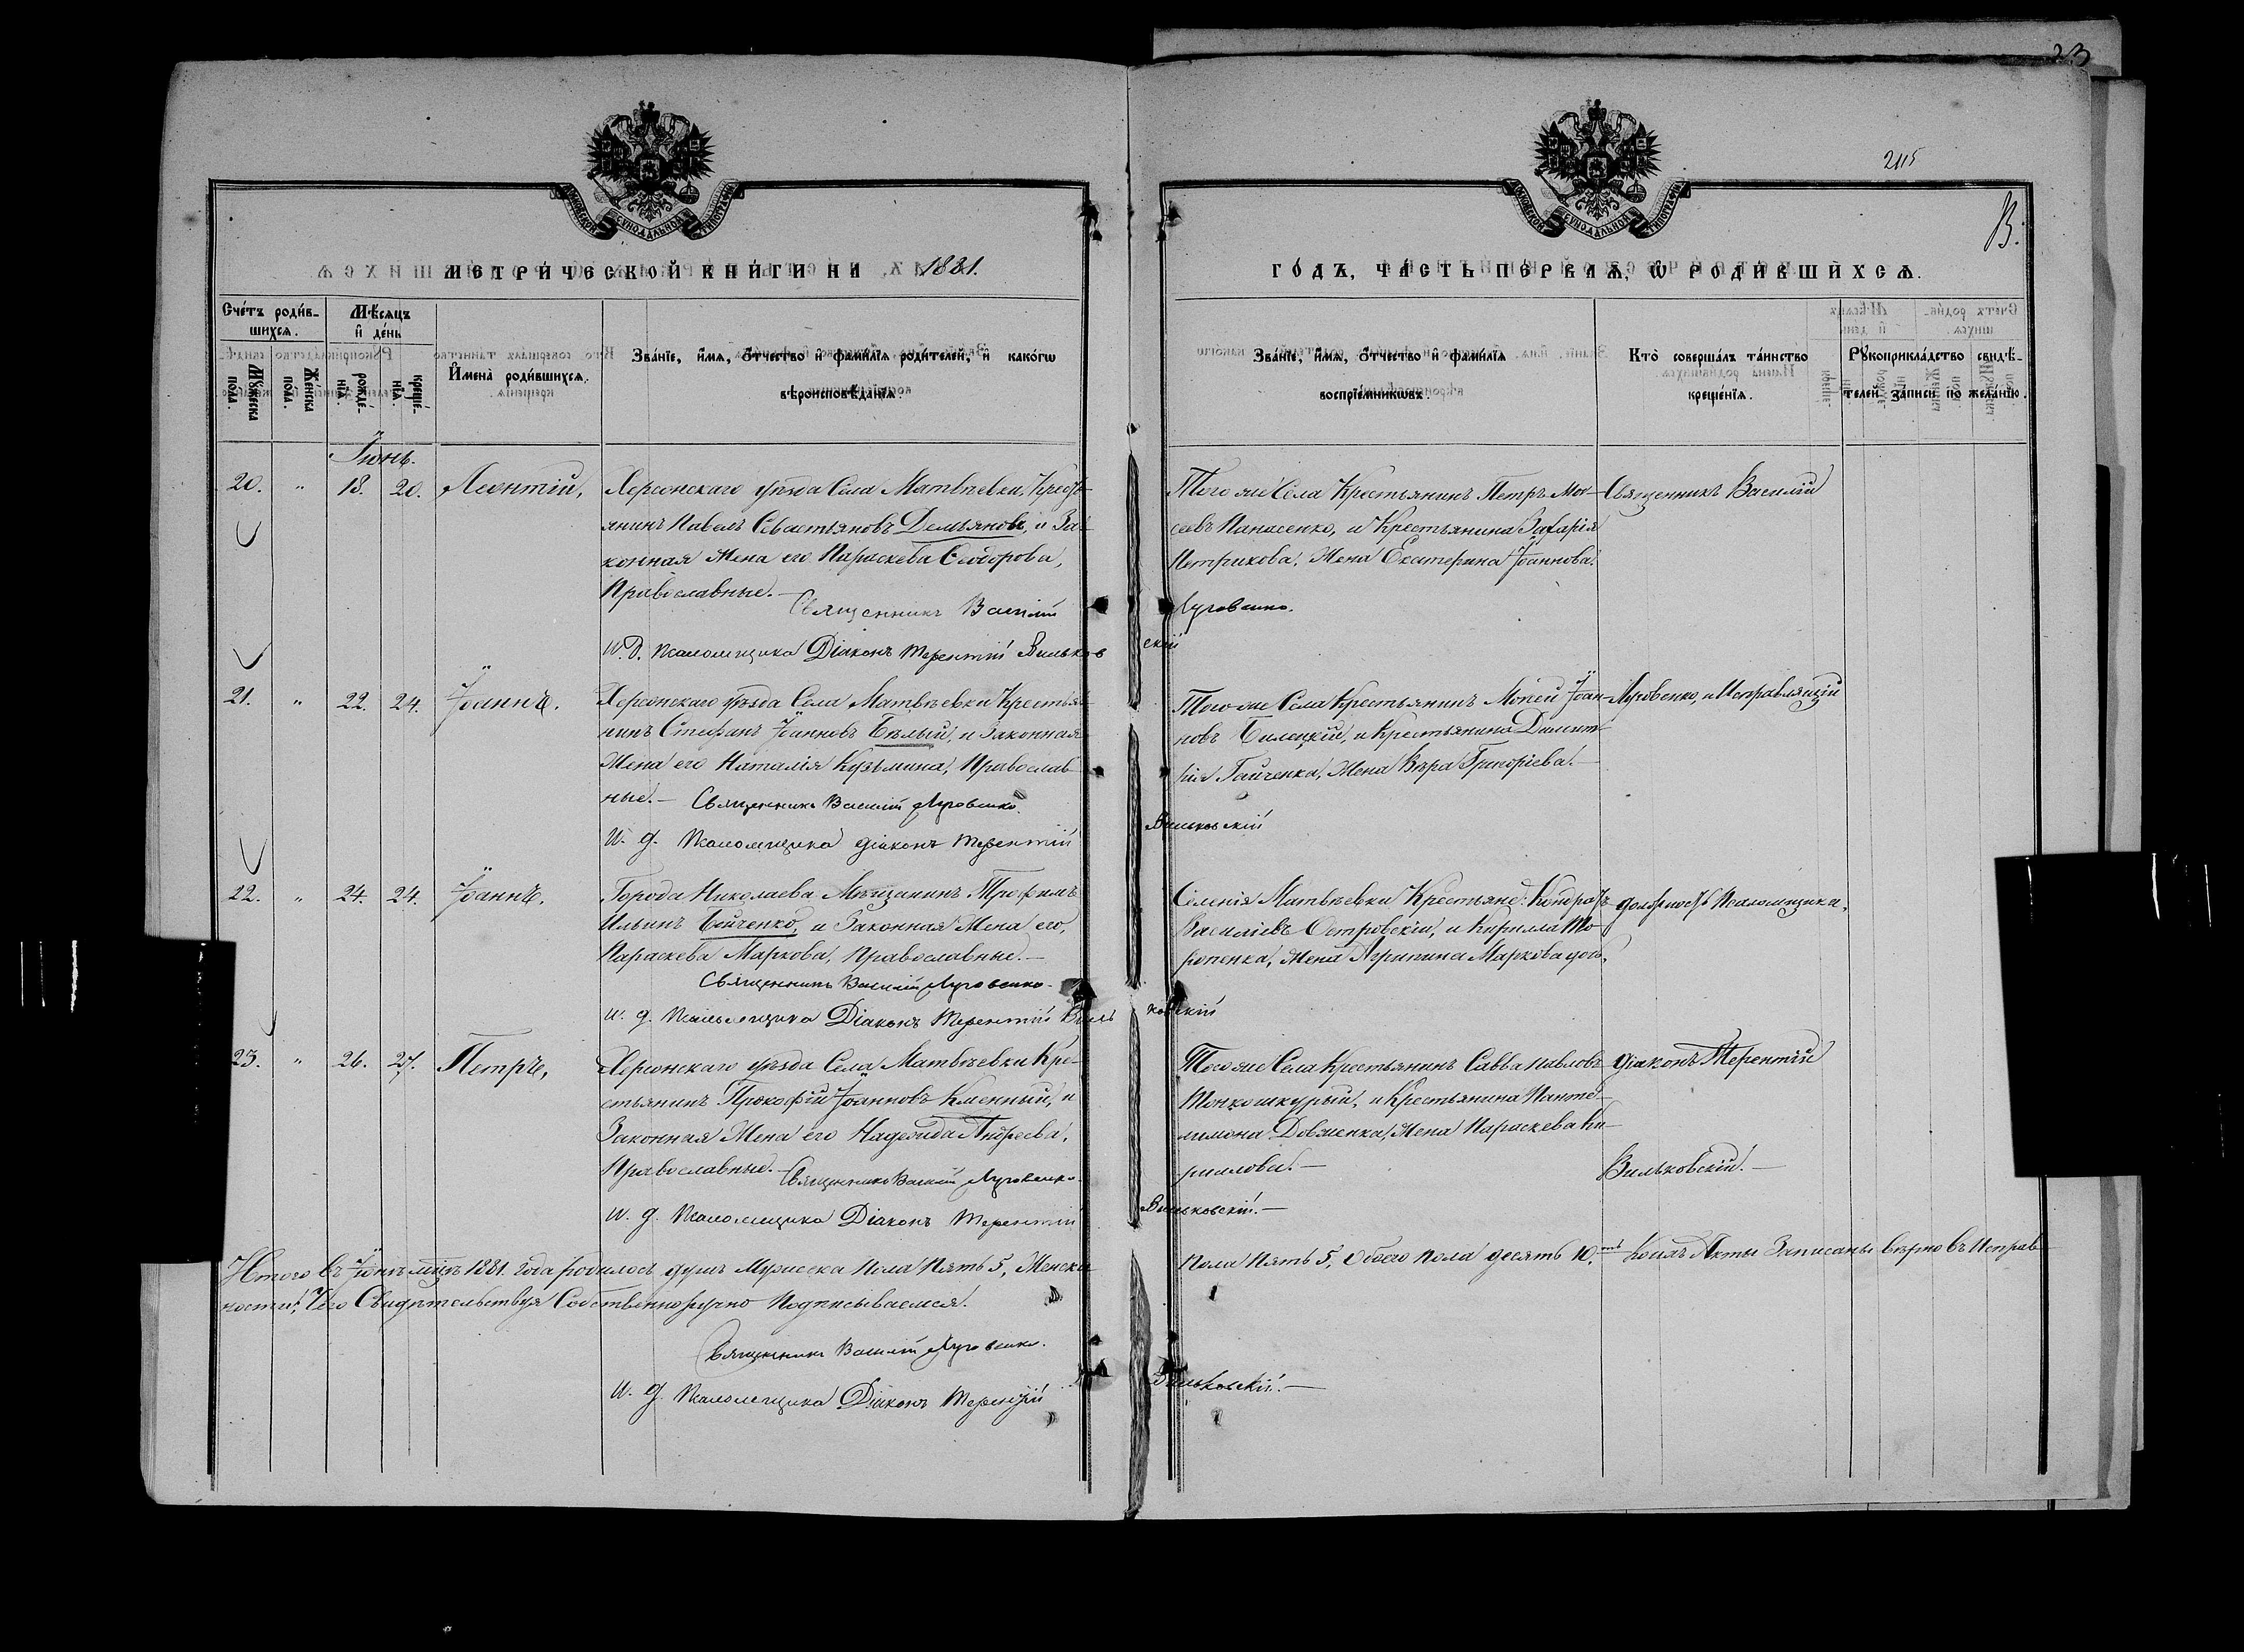 23
215
В.
МЕТРИЧЕСКОЙ КНИГИ НА 1881.
ГОДЪ, ЧАСТЬ ПЕРВАЯ, Ѡ РОДИВШИХСЯ.
МОСКОВСКОЙ СѴНОДАЛЬНОЙ ТИПОГРАФІИ
МОСКОВСКОЙ СѴНОДАЛЬНОЙ ТИПОГРАФІИ
Счетъ родившихся.
Мѣсяцъ и день
Мужеска пола.
Женска пола.
рожденїя.
крещенїя.
Имена родившихся.
Званїе, имя, отчество и фамилїя родителей, и какогѡ
вѣроисповѣданїя.
Званїе, имя, отчество и фамилїя
воспрїемникѡвъ.
Кто совершалъ таинство
крещенїя.
Рукоприкладство свидѣ-
телей записи по желанїю.
Іюнь.
20. " 18. 20. Леонтій,
Херсонскаго уѣзда Села Матвѣевки, Кресть-
янинъ Павелъ Севастьяновъ Демьяновъ, и За-
конная Жена его Параскева Сидорова,
Православные.—
Священникъ Василій Луговенко.
И. д. Псаломщика Діаконъ Терентій Вильковскій
Того же Села Крестьянинъ Петръ Мои-
сеевъ Панасенко, и Крестьянина Захарія
Петрикова, Жена Екатерина Іоаннова.
Священникъ Василій
21. " 22. 24. Іоаннъ.
Херсонскаго уѣзда Села Матвѣевки Крестья-
нинъ Стефанъ Іоанновъ Бѣлый, и Законная
Жена его Наталія Кузьмина, Православ-
ные.— Священникъ Василій Луговенко.
И. д. Псаломщика діаконъ Терентій Вильковскій
Того же Села Крестьянинъ Мокей Іоан-
новъ Билецкій, и Крестьянина Димит-
рія Гайченка, Жена Вѣра Григоріева.—
Луговенко, и Исправляющій
22. " 24. 24. Іоаннъ.
Города Николаева Мѣщанинъ Трофимъ
Ильинъ Бойченко, и Законная Жена его,
Параскева Маркова, Православные.—
Священникъ Василій Луговенко.
И. д. Псаломщика Діаконъ Терентій Вильковскій
Селенія Матвѣевки Крестьяне: Кондратъ
Василіевъ Островскій, и Кирилла
Жена Агрипина Маркова
должность Псаломщика,
23. " 26. 27. Петръ,
Херсонскаго уѣзда Села Матвѣевки Кре-
стьянинъ Прокофій Іоанновъ Кменный, и
Законная Жена его Надежда Андреева,
Православные.—
Священникъ Василій Луговенко.
И. д. Псаломщика Діаконъ Терентій Вильковскій.—
Того же Села Крестьянинъ Савва Павловъ
Тонкошкурый, и Крестьянина Панте-
лимона Довженка, Жена Параскева Ки-
рилова.—
діаконъ Терентій
Вильковскій.—
Итого въ Іюнѣ мцѣ 1881. года родилось душъ Мужеска пола Пять 5, Женска пола Пять 5, Обоего пола десять 10. коихъ Акты Записаны вѣрно въ Исправ-
ности, Чего Свидѣтельствуя Собственноручно Подписываемся.
Священникъ Василій Луговенко.
И. д. Псаломщика Діаконъ Терентій Вильковскій.—